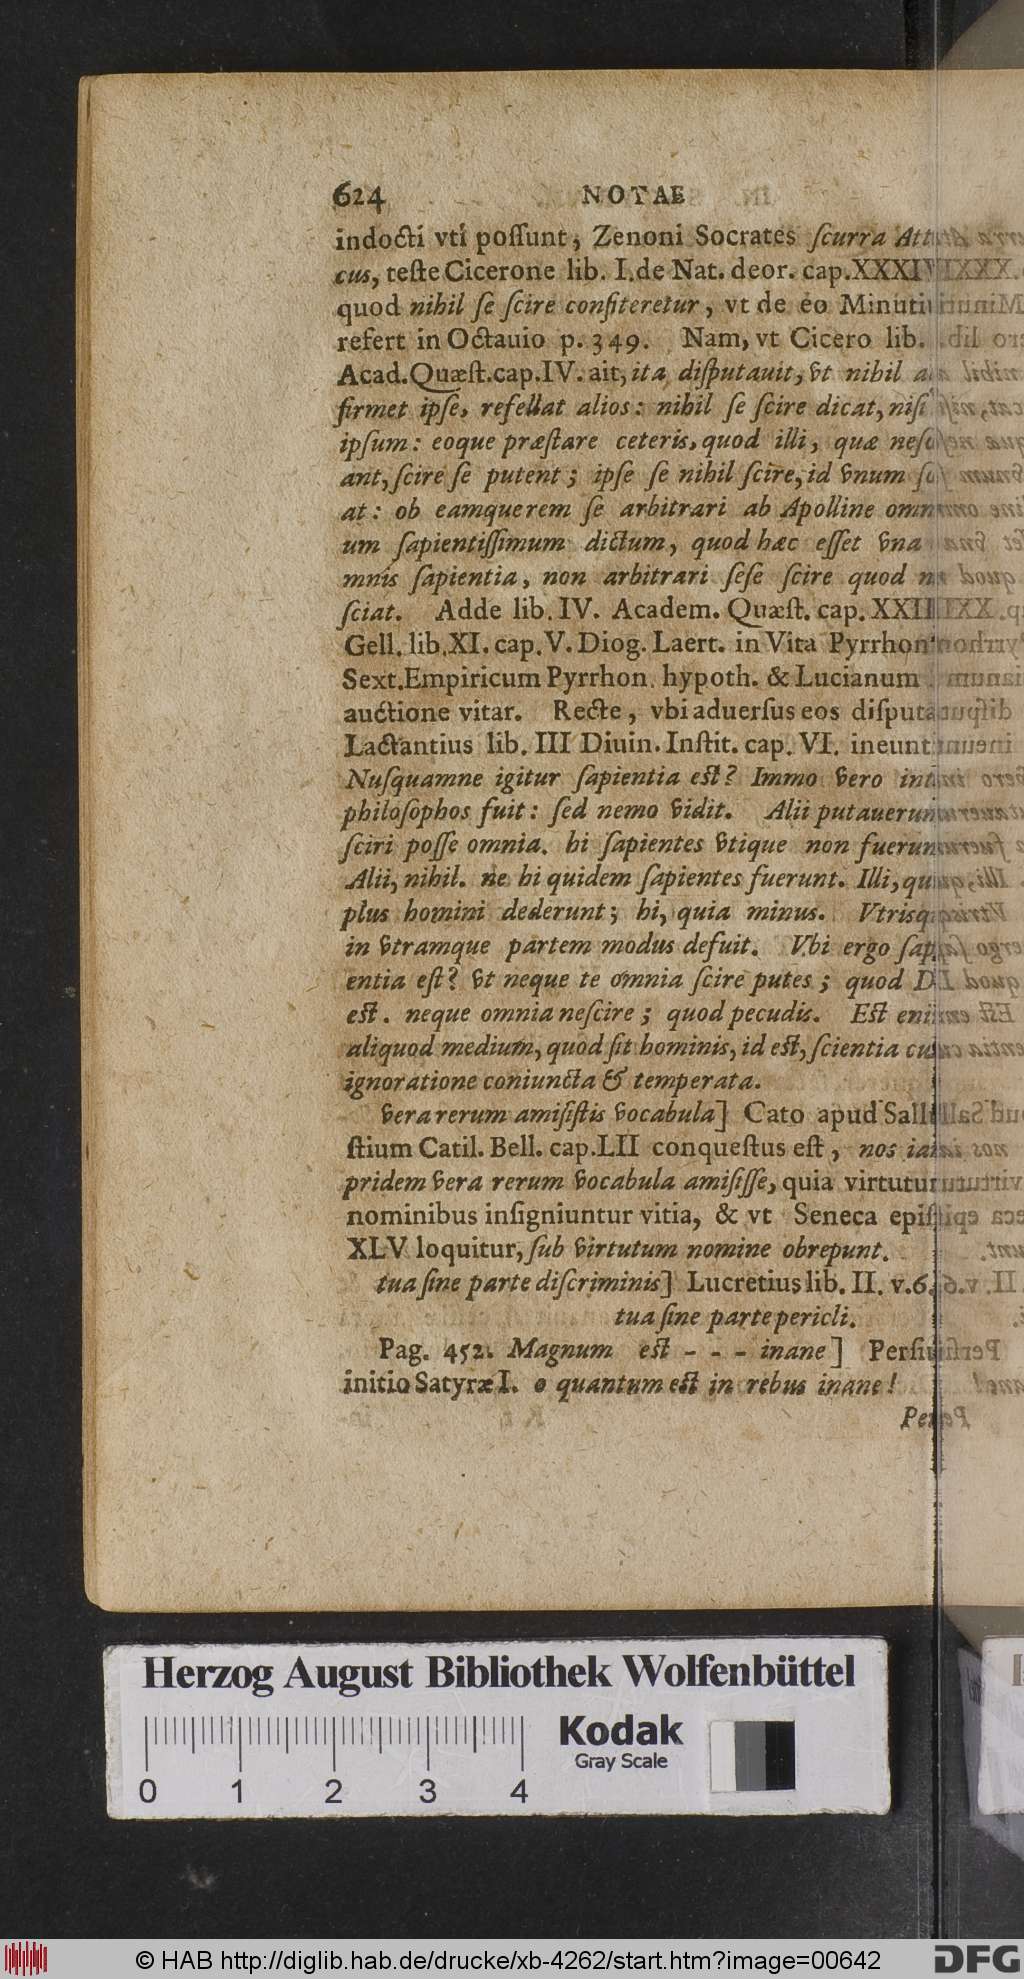 624 NOTAE
indocti vti poſſunt, Zenoni Socrates ſcurra Atti
cus, teſte Cicerone lib. I. de Nat. deor. cap. XXXIV
quod nihil ſe ſcire confiteretur, vt de eo Minuti
refert in Octauio p. 349. Nam, vt Cicero lib.
Acad. Quæſt. cap. IV. ait, ita diſputauit, vt nihil a
firmet ipſe, refellat alios: nihil ſe ſcire dicat, niſi
ipſum: eoque præſtare ceteris, quod illi, quæ neſc
ant, ſcire ſe putent; ipſe ſe nihil ſcire, id vnum ſc
at: ob eamque rem ſe arbitrari ab Apolline omn
um ſapientiſſimum dictum, quod hæc eſſet vna
mnis ſapientia, non arbitrari ſeſe ſcire quod n
ſciat. Adde lib. IV. Academ. Quæſt. cap. XXII
Gell. lib. XI. cap. V. Diog. Laert. in Vita Pyrrhon
Sext. Empiricum Pyrrhon. hypoth. & Lucianum
auctione vitar. Recte, vbi aduerſus eos diſputa
Lactantius lib. III Diuin. Inſtit. cap. VI. ineunt
Nuſquamne igitur ſapientia eſt? Immo vero int
philoſophos fuit: ſed nemo vidit. Alii putauerun
ſciri poſſe omnia. hi ſapientes vtique non fuerun
Alii, nihil. ne hi quidem ſapientes fuerunt. Illi, qu
plus homini dederunt; hi, quia minus. Vtrisq
in vtramque partem modus defuit. Vbi ergo ſap
entia eſt? vt neque te omnia ſcire putes; quod D
eſt. neque omnia neſcire; quod pecudis. Eſt eni
aliquod medium, quod ſit hominis, id eſt, ſcientia cu
ignoratione coniuncta & temperata.
vera rerum amiſiſtis vocabula] Cato apud Sall
ſtium Catil. Bell. cap. LII conqueſtus eſt, nos ia
pridem vera rerum vocabula amiſiſſe, quia virtutu
nominibus inſigniuntur vitia, & vt Seneca epiſ
XLV loquitur, ſub virtutum nomine obrepunt.
tua ſine parte diſcriminis] Lucretius lib. II. v. 6.
tua ſine parte pericli.
Pag. 452. Magnum eſt - - - inane] Perſiu
initio Satyræ I. o quantum eſt in rebus inane!
Pe
Herzog August Bibliothek Wolfenbüttel
Kodak
Gray Scale
0 1 2 3 4
© HAB http://diglib.hab.de/drucke/xb-4262/start.htm?image=00642
DFG